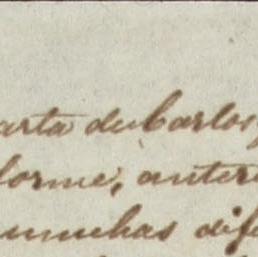 arta de Carlos
forme, anteri
muchas dife